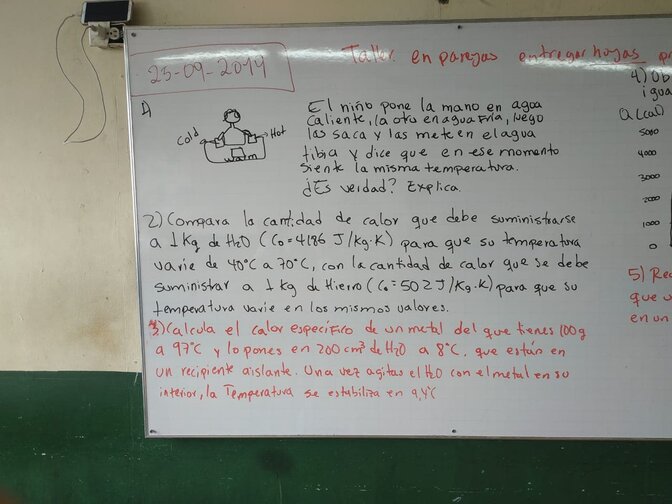 25-09-2014
Taller en parejas entregar hoyas
1)
Cold
Hot
warm
El niño pone la mano en agua
caliente, la otra en agua Fría, luego
las saca y las mete en el agua
tibia y dice que en ese momento
siente la misma temperatura.
¿Es verdad? Explica.
2) Compara la cantidad de calor que debe suministrarse
a 1 Kg de H2O (Co = 4186 J/kg·K) para que su temperatura
varie de 40°C a 70°C, con la cantidad de calor que se debe
suministrar a 1 kg de Hierro (Co = 502 J/Kg·K) para que su
temperatura varie en los mismos valores.
3) Calcula el calor específico de un metal del que tienes 100g
a 97°C y lo pones en 200 cm³ de H2O a 8°C, que están en
un recipiente aislante. Una vez agitas el H2O con el metal en su
interior, la Temperatura se estabiliza en 9,4°C
4) Ob
igua
Q(cal)
5000
4000
3000
2000
1000
0
5) Re
que u
en un